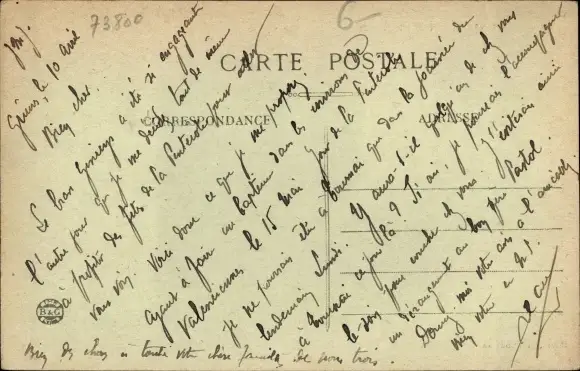 73800
6-
CARTE POSTALE
CORRESPONDANCE
ADRESSE
J M J
le 10 Avril
Bien cher
Le bon Georges a été si engageant
l'autre jour que je me décide tout de même
à profiter des fêtes de la Pentecôte pour aller
vous voir. Voici donc ce que je me propose
Ayant à faire un baptême dans les environs de
Valenciennes le 15 Mai jour de la Pentecôte
je ne pourrais être à Tournai que dans la journée du
lendemain Lundi. Y aura-t-il quelqu'un de chez vous
à Tournai ce jour là ? Si oui, je pourrais l'accompagner
le soir pour coucher chez vous. J'éviterais ainsi
un dérangement au bon père Pastol.
Donnez moi votre avis à l'amicale
Bien votre en N. S.
B&G
Bien des choses à toute votre chère famille de nous trois.